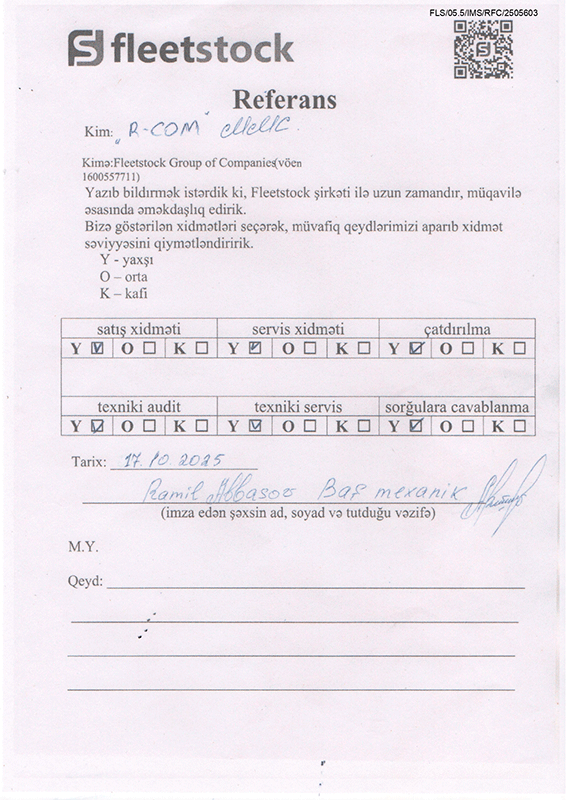 FLS/05.5/IMS/RFC/2505603
fleetstock
Referans
Kim: "R-COM" MMC.
Kimə:Fleetstock Group of Companies(vöen
1600557711)
Yazıb bildirmək istərdik ki, Fleetstock şirkəti ilə uzun zamandır, müqavilə
əsasında əməkdaşlıq edirik.
Bizə göstərilən xidmətləri seçərək, müvafiq qeydlərimizi aparıb xidmət
səviyyəsini qiymətləndiririk.
Y - yaxşı
O – orta
K – kafi
satış xidməti servis xidməti çatdırılma
Y ☑ O ☐ K ☐ Y ☑ O ☐ K ☐ Y ☑ O ☐ K ☐
texniki audit texniki servis sorğulara cavablanma
Y ☑ O ☐ K ☐ Y ☑ O ☐ K ☐ Y ☑ O ☐ K ☐
Tarix: 17.10.2025
Ramil Abbasov Baş mexanik
(imza edən şəxsin ad, soyad və tutduğu vəzifə)
M.Y.
Qeyd: